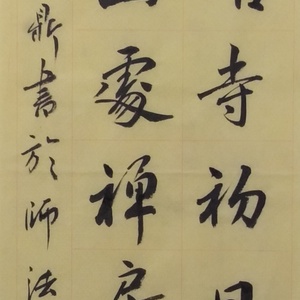 寺初日
處禪房
鼎書於師法